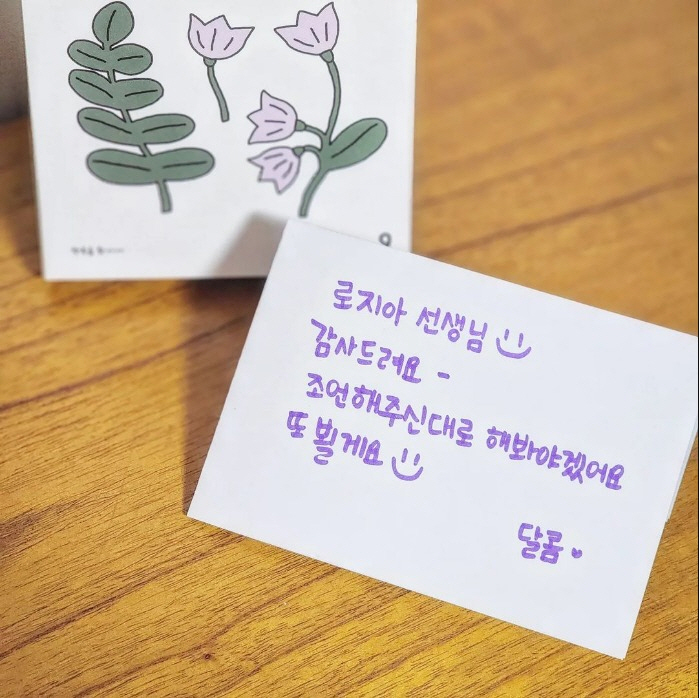 로지아 선생님
감사드려요 -
조언해주신대로 해봐야겠어요
또 뵐게요
달콤
9